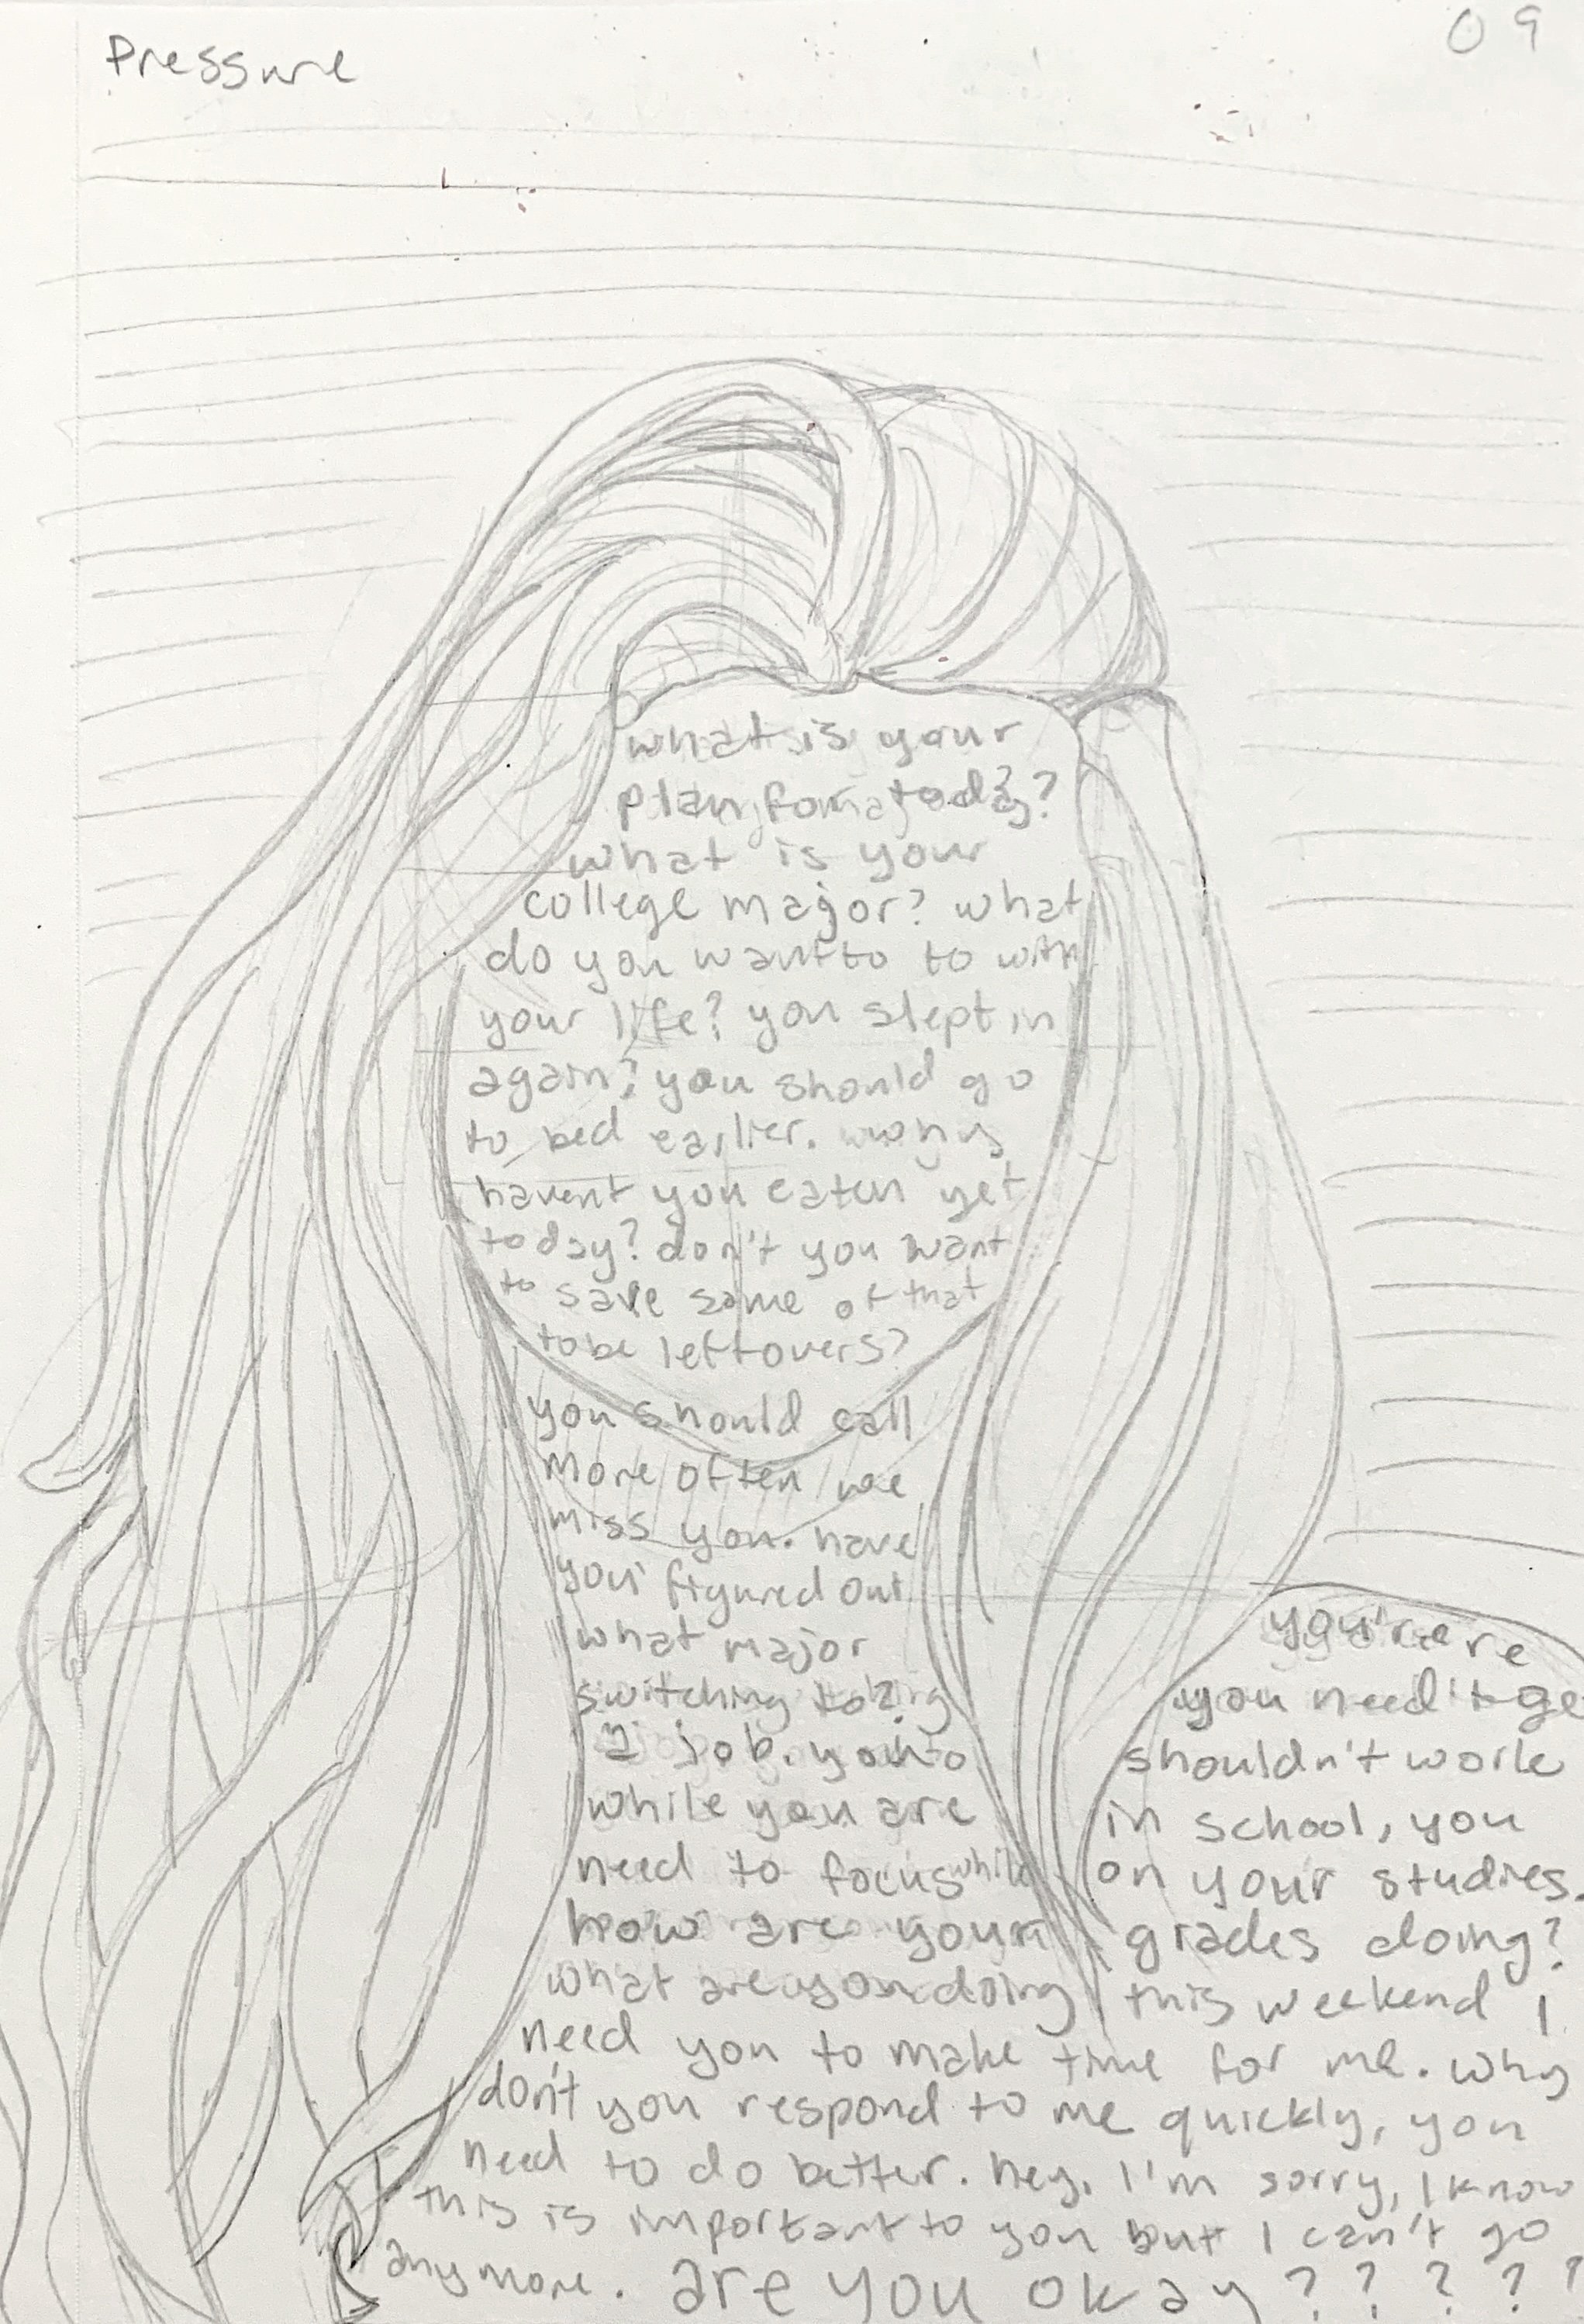 Pressure
09
what is your
plan for today?
what is your
college major? what
do you want to to with
your life? you slept in
again? you should go
to bed earlier. why
havent you eaten yet
today? don't you want
to save some of that
to be leftovers?
you should call
more often we
miss you. have
you figured out
what major you're
switching to? you need to ge
a job. you shouldn't work
while you are in school, you
need to focus on your studies.
how are your grades doing?
what are you doing this weekend I
need you to make time for me. why
don't you respond to me quickly, you
need to do better. hey, I'm sorry, I know
this is important to you but I can't go
anymore. are you okay?????